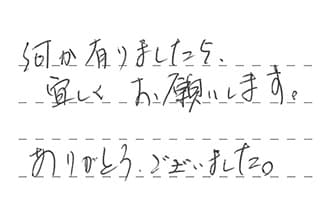 何か有りましたら、
宜しくお願いします。
ありがとう、ございました。